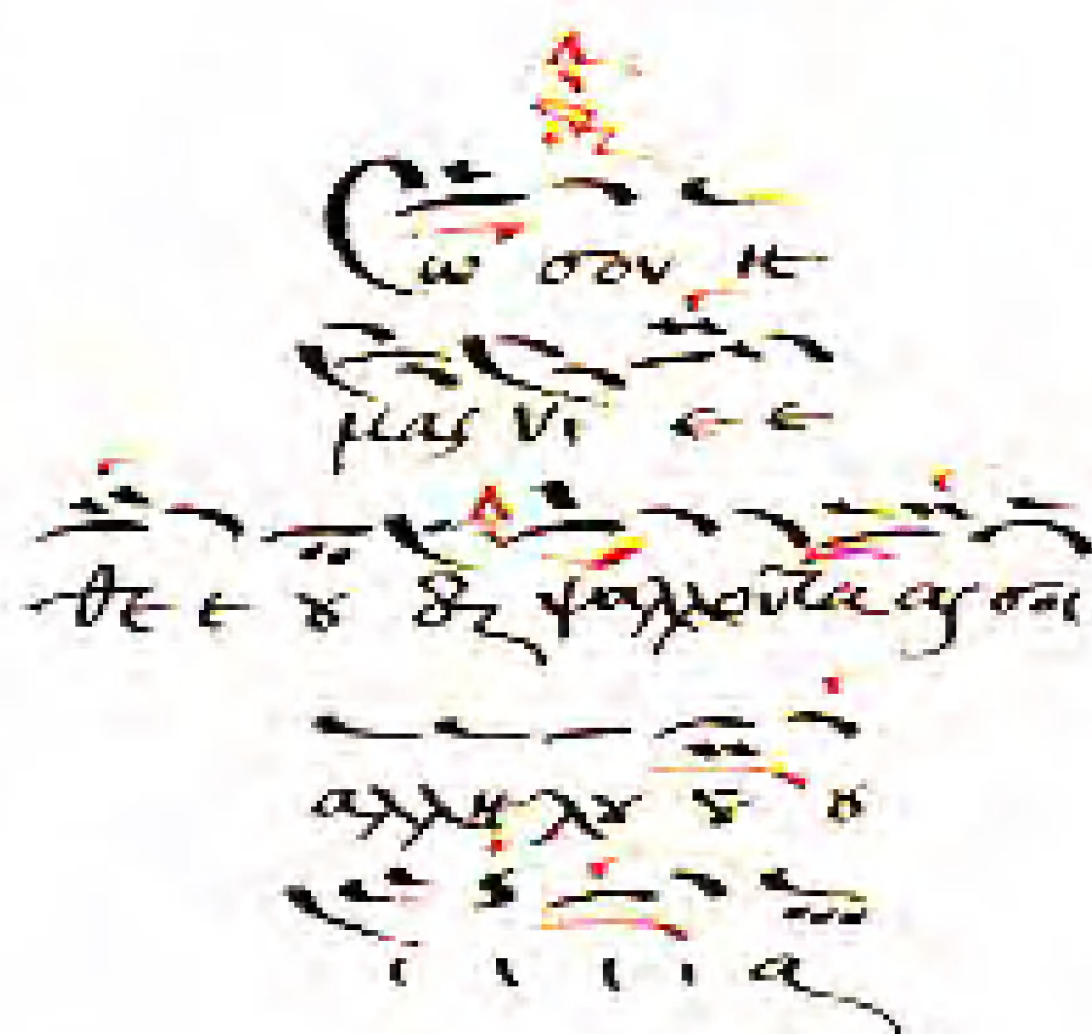 Σω σον η
μας υι ε ε
θε ε ου Θυ ψαλλοντας σοι
αλλη λου ου ου
ι ι ι ι α